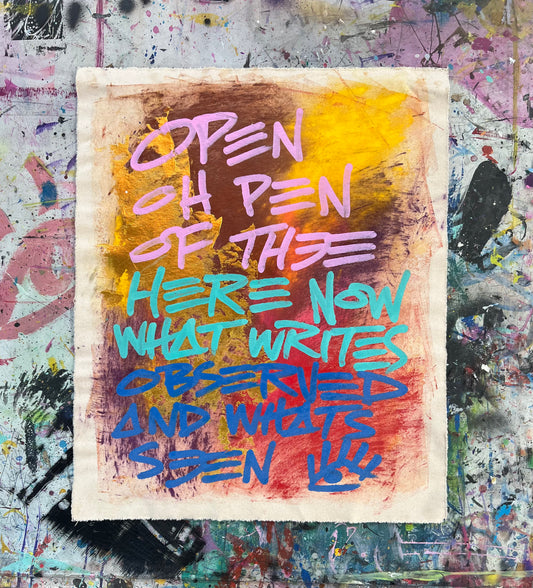 OPEN
OH PEN
OF THEE
HERE NOW
WHAT WRITES
OBSERVED
AND WHATS
SEEN